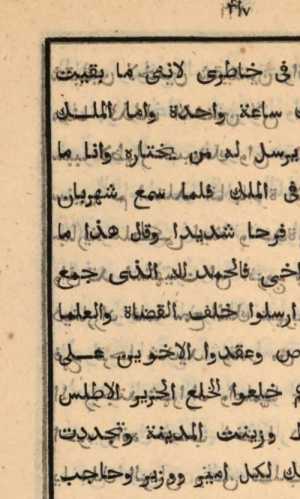 ٤١٧
فى خاطرى لاننى ما بقيت
ساعة واحدة واما الملك
يرسل له من يختاره وانا ما
فى الملك فلما سمع شهريار
فرحا شديدا وقال هذا ما
اخى فالحمد لله الذى جمع
ارسلوا خلف القضاة والعلما
وعقدوا الاخوين على
خلعوا الخلع الحرير الاطلس
وزينت المدينة وتجددت
لكل امير ووزير وحاجب